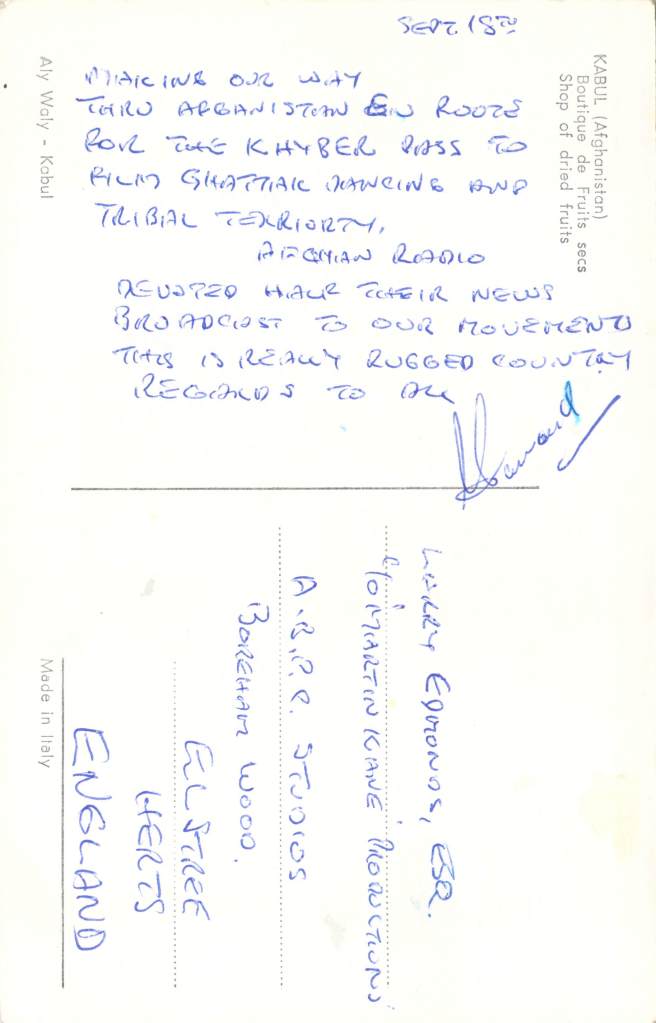 SEPT. 18TH
MAKING OUR WAY
THRU AFGANISTAN EN ROOTE
FOR THE KHYBER PASS TO
FILM GHATTAK DANCING AND
TRIBAL TERRIORTY.
AFGHAN RADIO
DEVOTED HALF THEIR NEWS
BROADCAST TO OUR MOVEMENTS
THIS IS REALLY RUGGED COUNTRY
REGARDS TO ALL
KABUL (Afghanistan)
Boutique de Fruits secs
Shop of dried fruits
Aly Waly - Kabul
LARRY EDMONDS, ESQ.
C/O "MARTIN KANE" PRODUCTIONS
A.B.P.C. STUDIOS
BOREHAM WOOD.
ELSTREE
HERTS
ENGLAND
Made in Italy